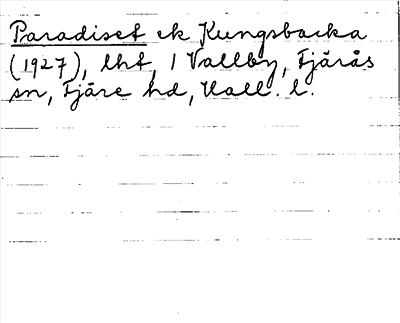 Paradiset ek Kungsbacka
(1927), lht, 1 Vallby, Fjärås
sn, Fjäre hd, Hall. l.